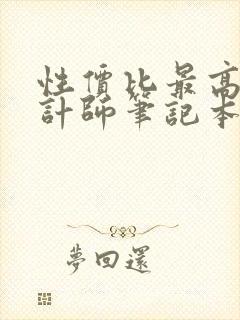 性價比最高
計師筆記本
夢回還